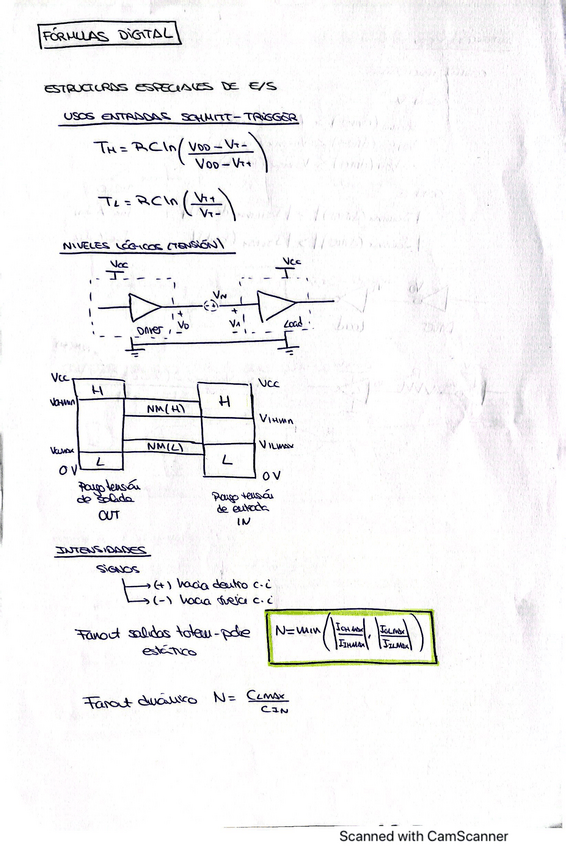 FÓRMULAS DIGITAL
ESTRUCTURAS ESPECIALES DE E/S
USOS ENTRADAS SCHMITT-TRIGGER
TH = RC ln (VDD - VT- / VDD - VT+)
TL = RC ln (VT+ / VT-)
NIVELES LÓGICOS (TENSIÓN)
Vcc Vcc
VN
Driver + VO + VI Load
Vcc H H Vcc
VOHmin NM(H) VIHmin
VOLmax NM(L) VILmax
0V L L 0V
Rango tensión de salida OUT
Rango tensión de entrada IN
INTENSIDADES
SIGNOS
(+) hacia dentro c.i
(-) hacia fuera c.i
Fanout salidas totem-pole estático
N = min (|IOHMAX / IIHMAX|, |IOLMAX / IILMAX|)
Fanout dinámico N = CLMAX / CIN
Scanned with CamScanner